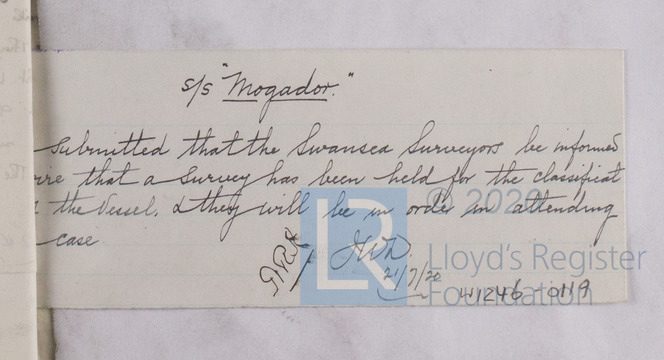 s/s "Mogador."
Submitted that the Swansea Surveyors be informed
ire that a Survey has been held for the classificat
the Vessel, & they will be in order in attending
case
21/7/20
© 2020
Lloyd's Register
Foundation
W1246-0119